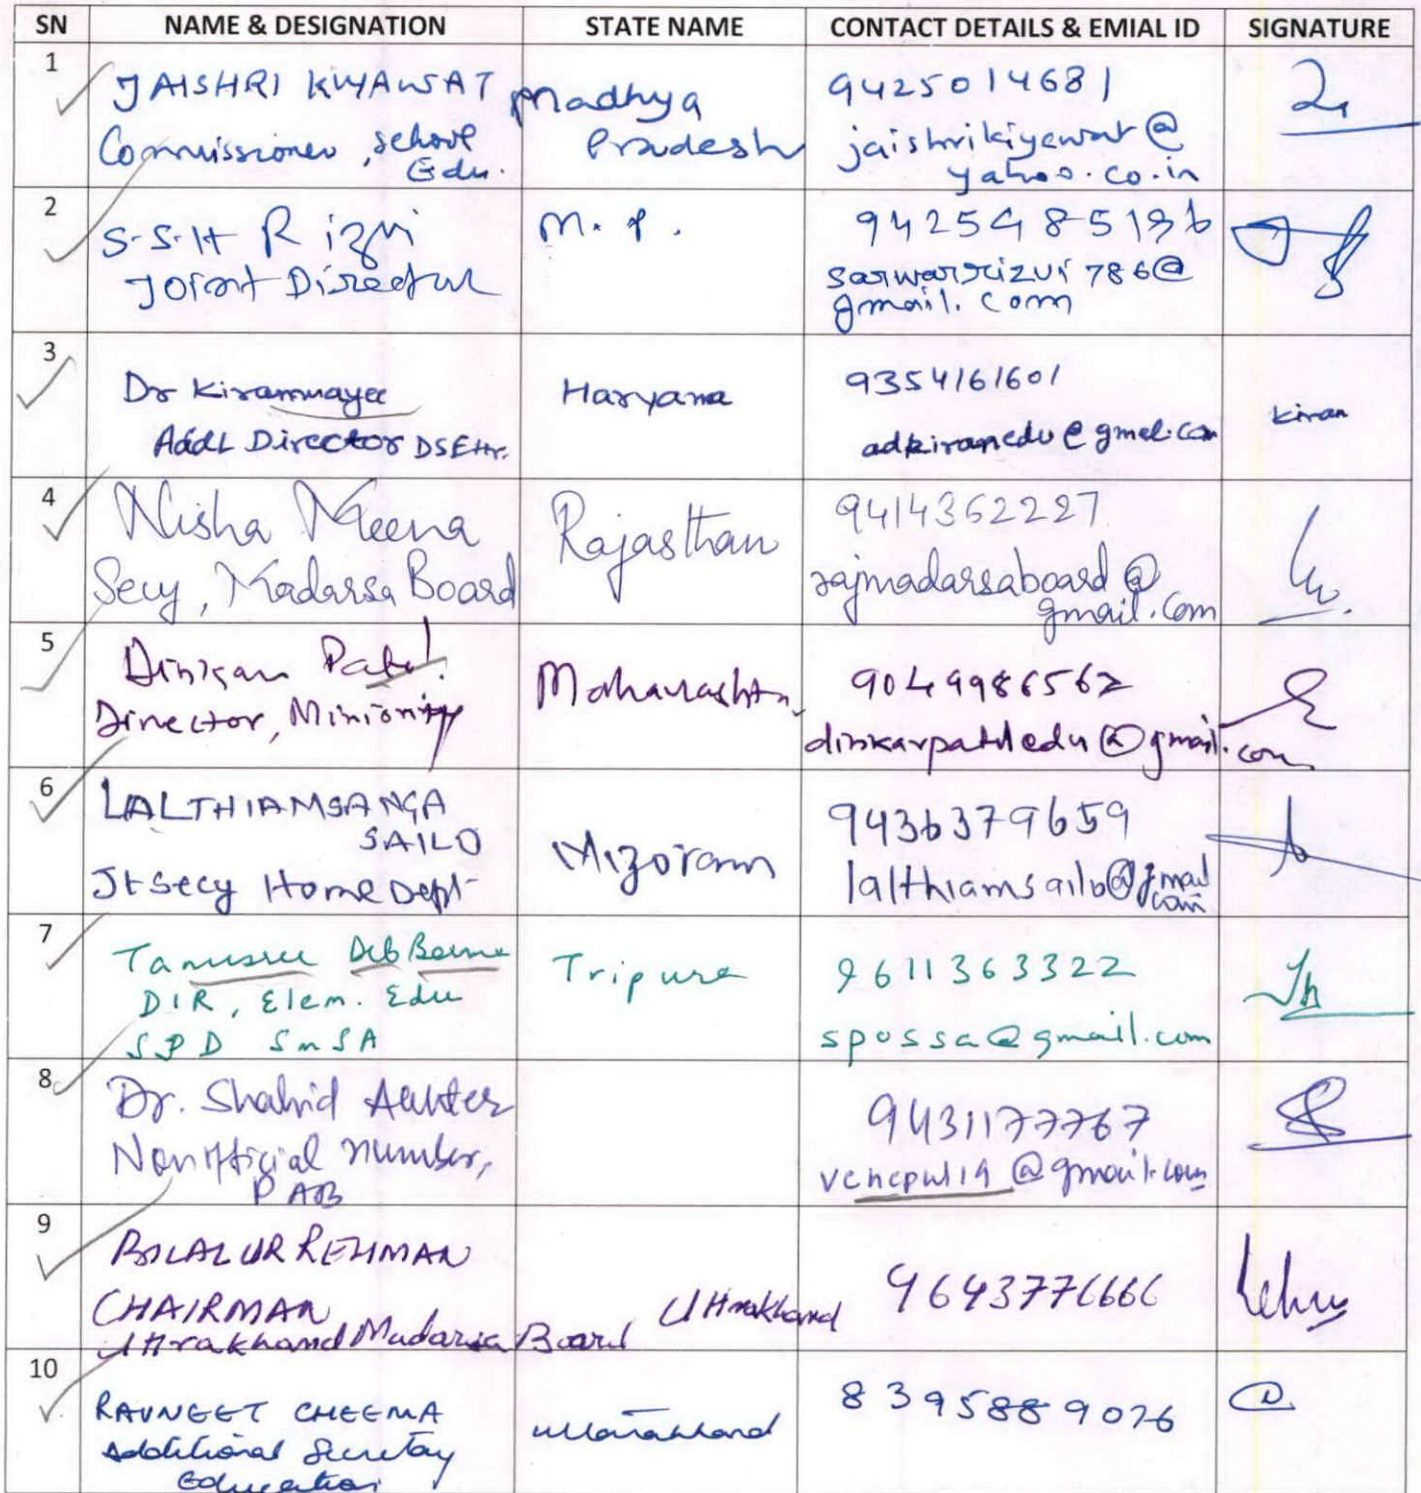 SN NAME & DESIGNATION STATE NAME CONTACT DETAILS & EMIAL ID SIGNATURE
1
JAISHRI KIYAWAT
Commissioner, School
Edu.
Madhya
Pradesh
9425014681
jaishrikiyawat@
yahoo.co.in
2
S.S.H Rizvi
Joint Director
M.P.
sarwarrizvi786@
gmail.com
3
Dr Kiranmayee
Addl Director DSEHr.
Haryana
9354161601
adkiranedu@gmel.com
kiran
4
Nisha Meena
Secy, Madarsa Board
Rajasthan
9414362227
rajmadarsaboard@
gmail.com
5
Dinkar Patil
Director, Miniority
Maharashtra
9049986562
dinkarpatiledu@gmail.com
6
LALTHIAMSANGA
SAILO
Jt Secy Home Dept
Mizoram
9436379659
lalthiamsailo@gmail
com
7
Tanusree Deb Barma
DIR, Elem. Edu
SPD SmSA
Tripura
9611363322
spossa@gmail.com
8
Dr. Shahid Akhter
Nonofficial Member,
PAB
9431177767
@gmail.com
9
BILAL UR REHMAN
CHAIRMAN
Uttrakhand Madarsa Board
Uttrakhand
9643776666
10
RAVNEET CHEEMA
Additional Secretary
Education
Uttarakhand
8395889026